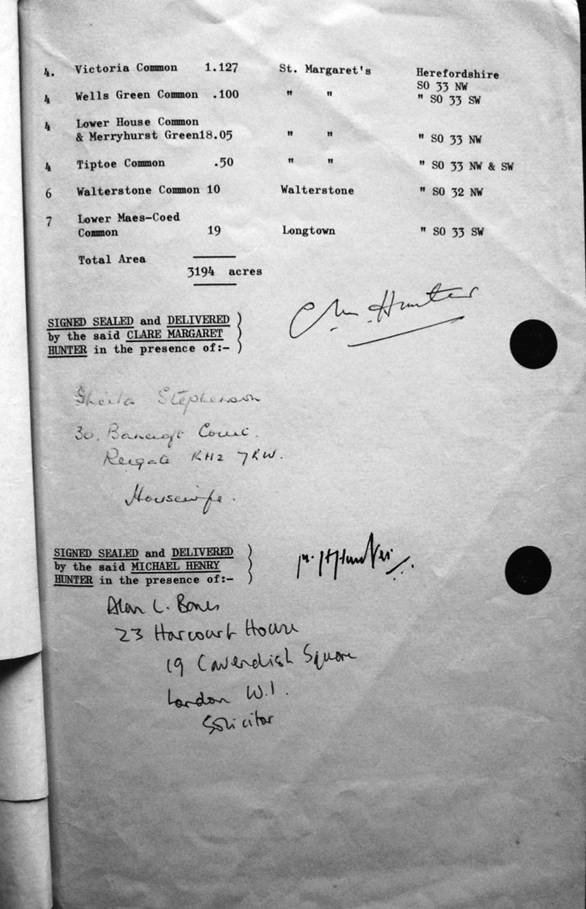 4. Victoria Common 1.127 St. Margaret's Herefordshire
SO 33 NW
4 Wells Green Common .100 " " " SO 33 SW
4 Lower House Common
& Merryhurst Green18.05 " " " SO 33 NW
4 Tiptoe Common .50 " " " SO 33 NW & SW
6 Walterstone Common 10 Walterstone " SO 32 NW
7 Lower Maes-Coed
Common 19 Longtown " SO 33 SW
Total Area
3194 acres
SIGNED SEALED and DELIVERED )
by the said CLARE MARGARET )
HUNTER in the presence of:- )
C M Hunter
Sheila Stephenson
30, Bancroft Court.
Reigate RH2 7RW.
Housewife.
SIGNED SEALED and DELIVERED )
by the said MICHAEL HENRY )
HUNTER in the presence of:- )
M. H Hunter
Alan L. Bones
23 Harcourt House
19 Cavendish Square
London W.1.
Solicitor